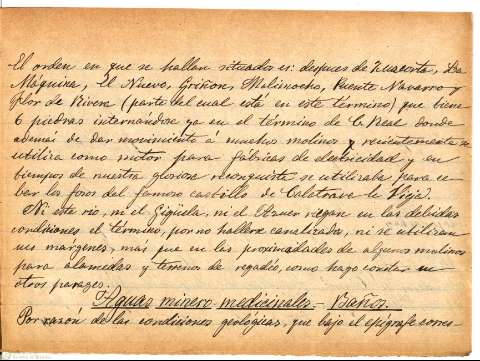 El orden en que se hallan situados es: despues de Zuacorta, La
Máquina, El Nuevo, Griñon, Molimocho, Puente Navarro y
Flor de Rivera (parte del cual está en este término) que tiene
6 piedras internándose ya en el término de C. Real donde
además de dar movimiento á muchos molinos y recientemente se
utiliza como motor para fabricas de electricidad y en
tiempos de nuestra gloriosa reconquista se utilizaba para ce-
bar los fosos del famoso castillo de Calatrava la Vieja.
Ni este rio, ni el Gigüela, ni el Azuer riegan en las debidas
condiciones el término, por no hallarse canalizado, ni se utilizan
sus margenes, más que en las proximidades de algunos molinos
para alamedas y terrenos de regadio, como hago constar en
otros parages.
Aguas minero-medicinales.- Baños.
Por razón de las condiciones geológicas, que bajo el epígrafe corres